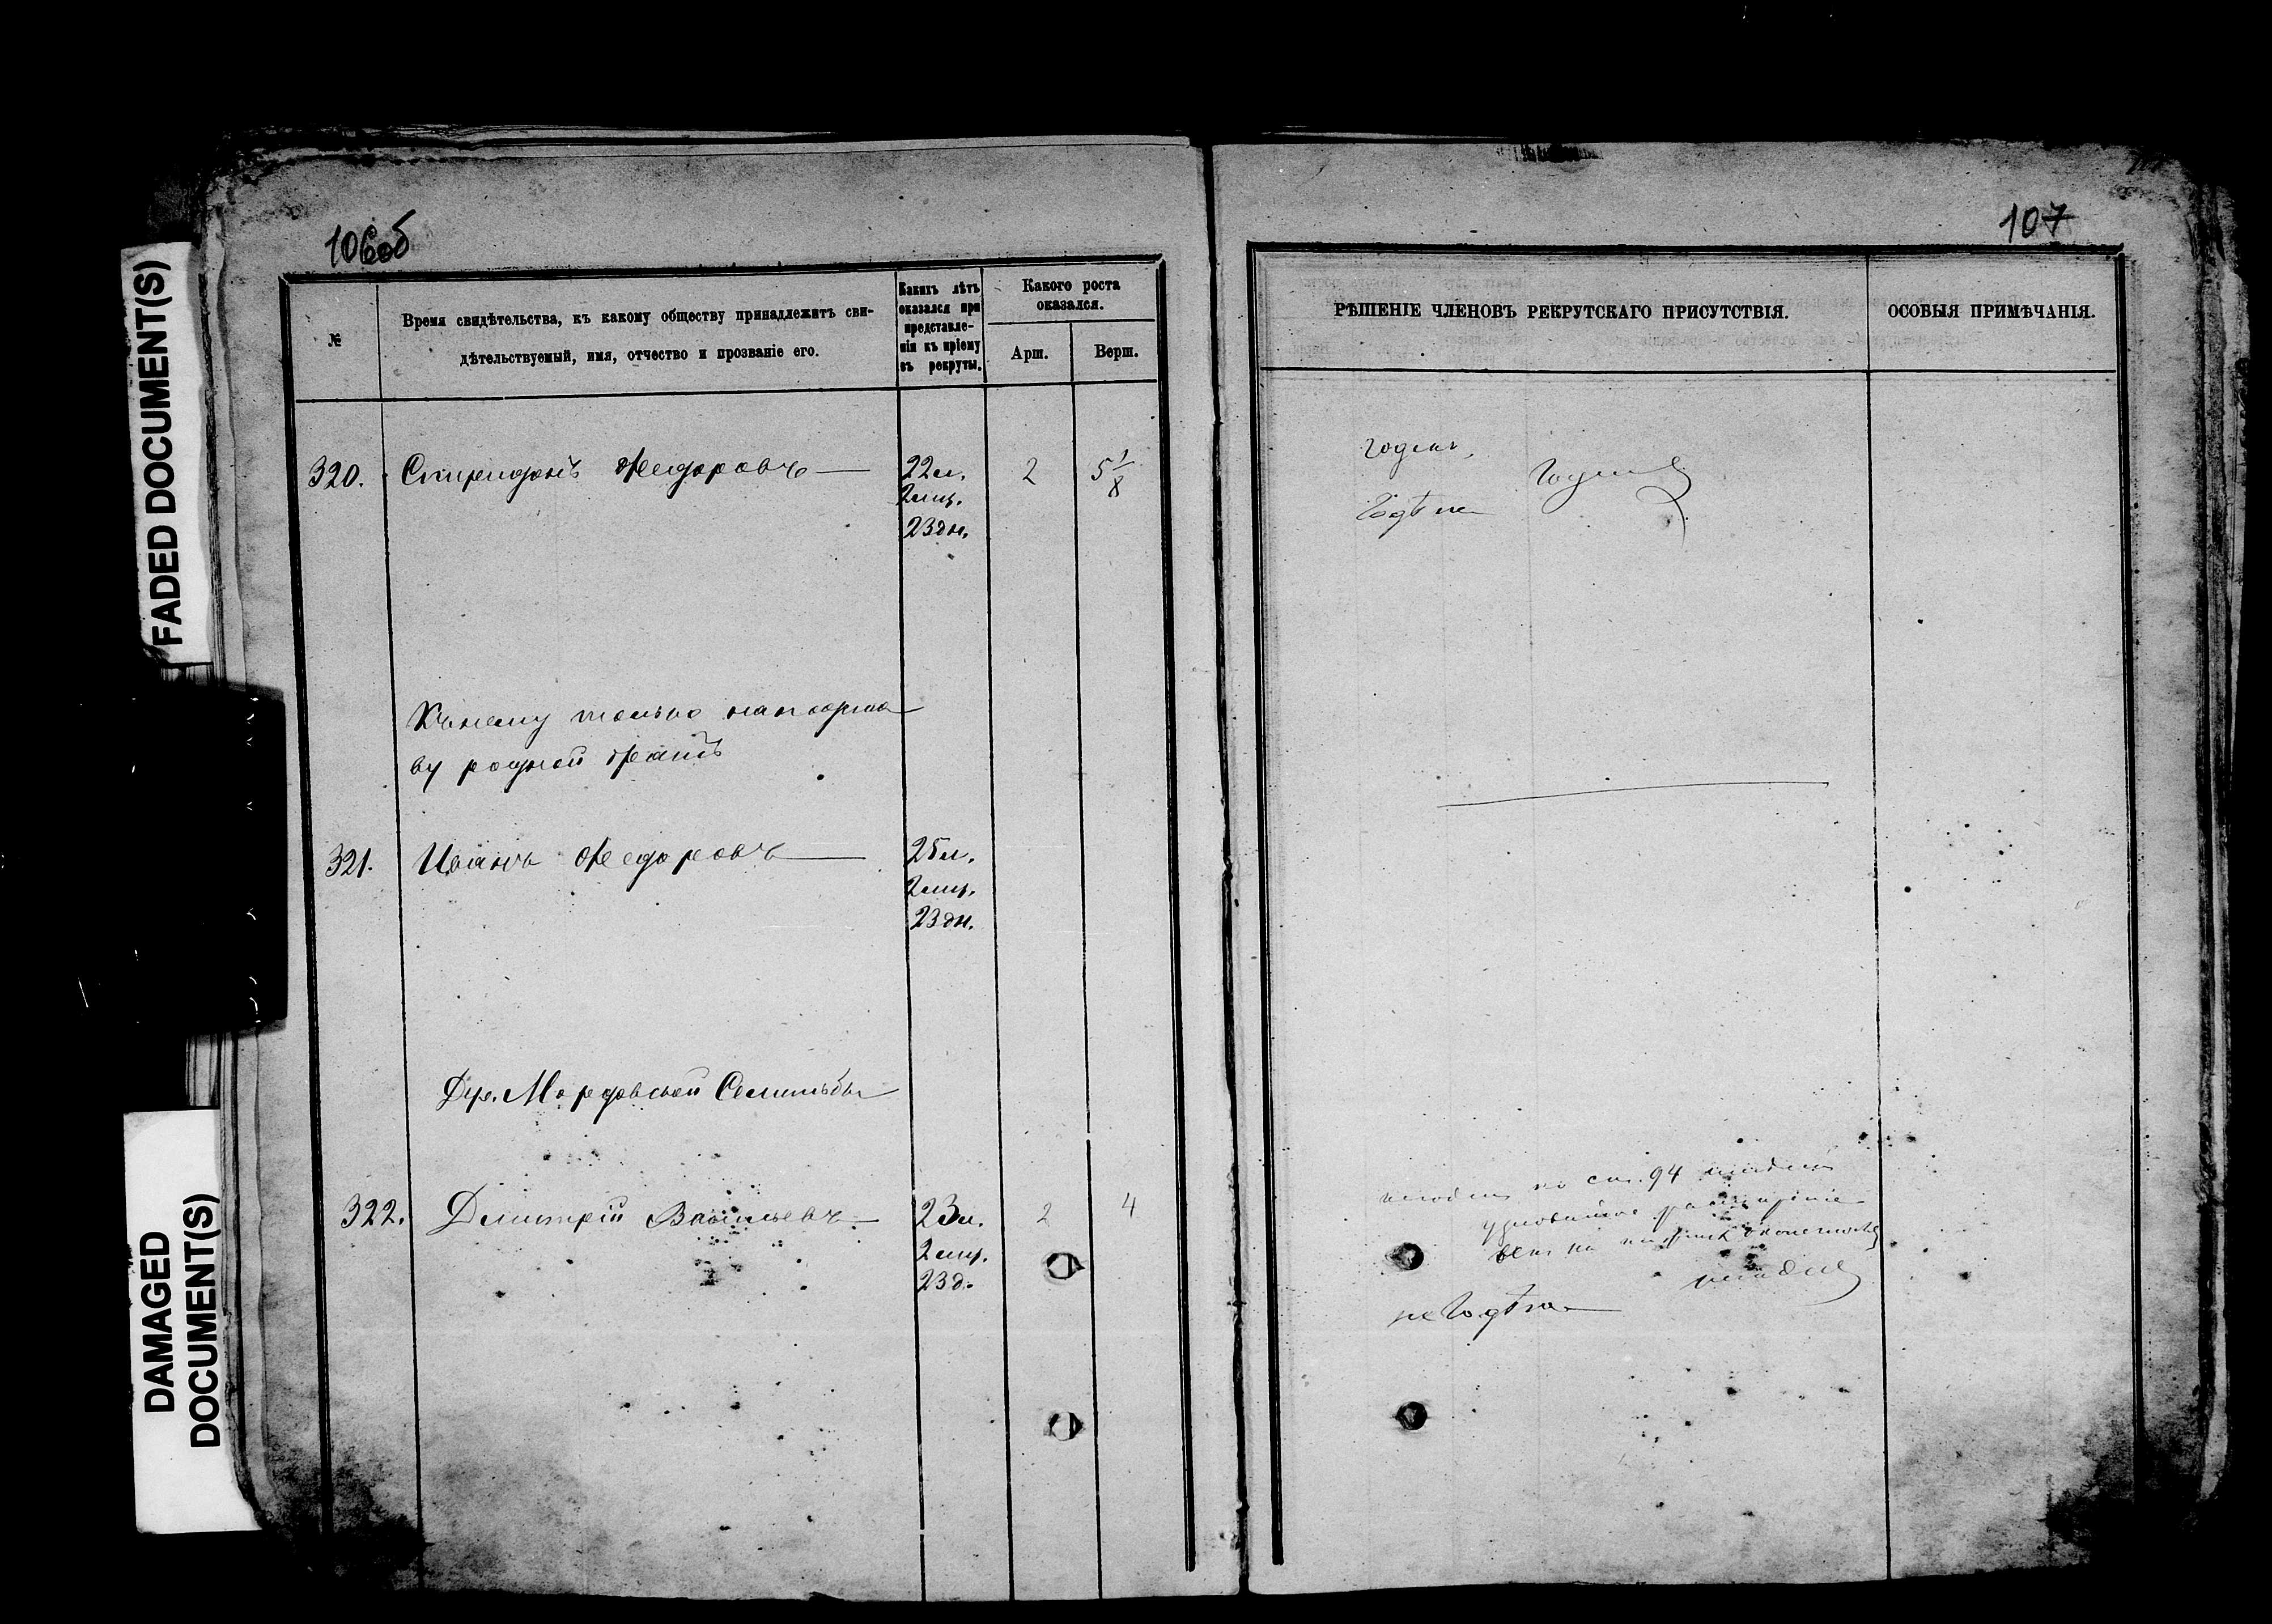 FADED DOCUMENT(S)
DAMAGED
DOCUMENT(S)
106об
№
Время свидѣтельства, къ какому обществу принадлежитъ сви-
дѣтельствуемый, имя, отчество и прозваніе его.
Какихъ лѣтъ
оказался при
представле-
ніи къ пріему
въ рекруты.
Какого роста
оказался.
Арш.
Верш.
320. Спиридонъ Ѳедоровъ 22 л. 2 5 1/8
2 мц.
23 дн.
Къ нему только на подста
ву родной братъ
321. Иванъ Ѳедоровъ 25 л.
2 мц.
23 дн.
Дер. Мордовской Селитьбы
322. Дмитрій Васильевъ 23 л. 2 4
2 мц.
23 д.
107
РѢШЕНІЕ ЧЛЕНОВЪ РЕКРУТСКАГО ПРИСУТСТВІЯ.
ОСОБЫЯ ПРИМѢЧАНІЯ.
годенъ,
Годенъ
Годѣнъ
негоденъ по ст. 94
расширеніе
венъ на оконечности
негоденъ
не Годѣнъ